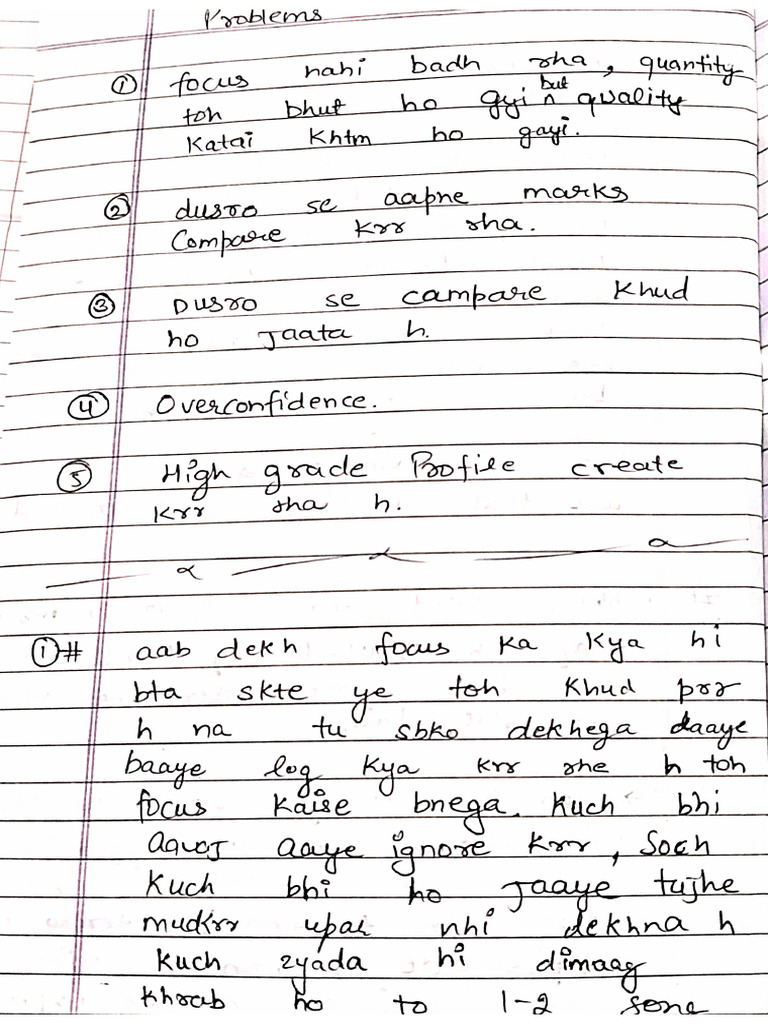 Problems
① focus nahi badh rha, quantity
toh bhut ho gyi but quality
Katai Khtm ho gayi.
② dusro se aapne marks
Compare Krr rha.
③ Dusro se campare Khud
ho Jaata h.
④ Overconfidence.
⑤ High grade Profile create
Krr rha h.
①# aab dekh focus ka Kya hi
bta skte ye toh Khud prr
h na tu sbko dekhega daaye
baaye log Kya krr rhe h toh
focus Kaise bnega. Kuch bhi
aavaj aaye ignore Krr, Soch
Kuch bhi ho Jaaye tujhe
mudkrr upar nhi dekhna h
Kuch zyada hi dimaag
Khrab ho to 1-2 song